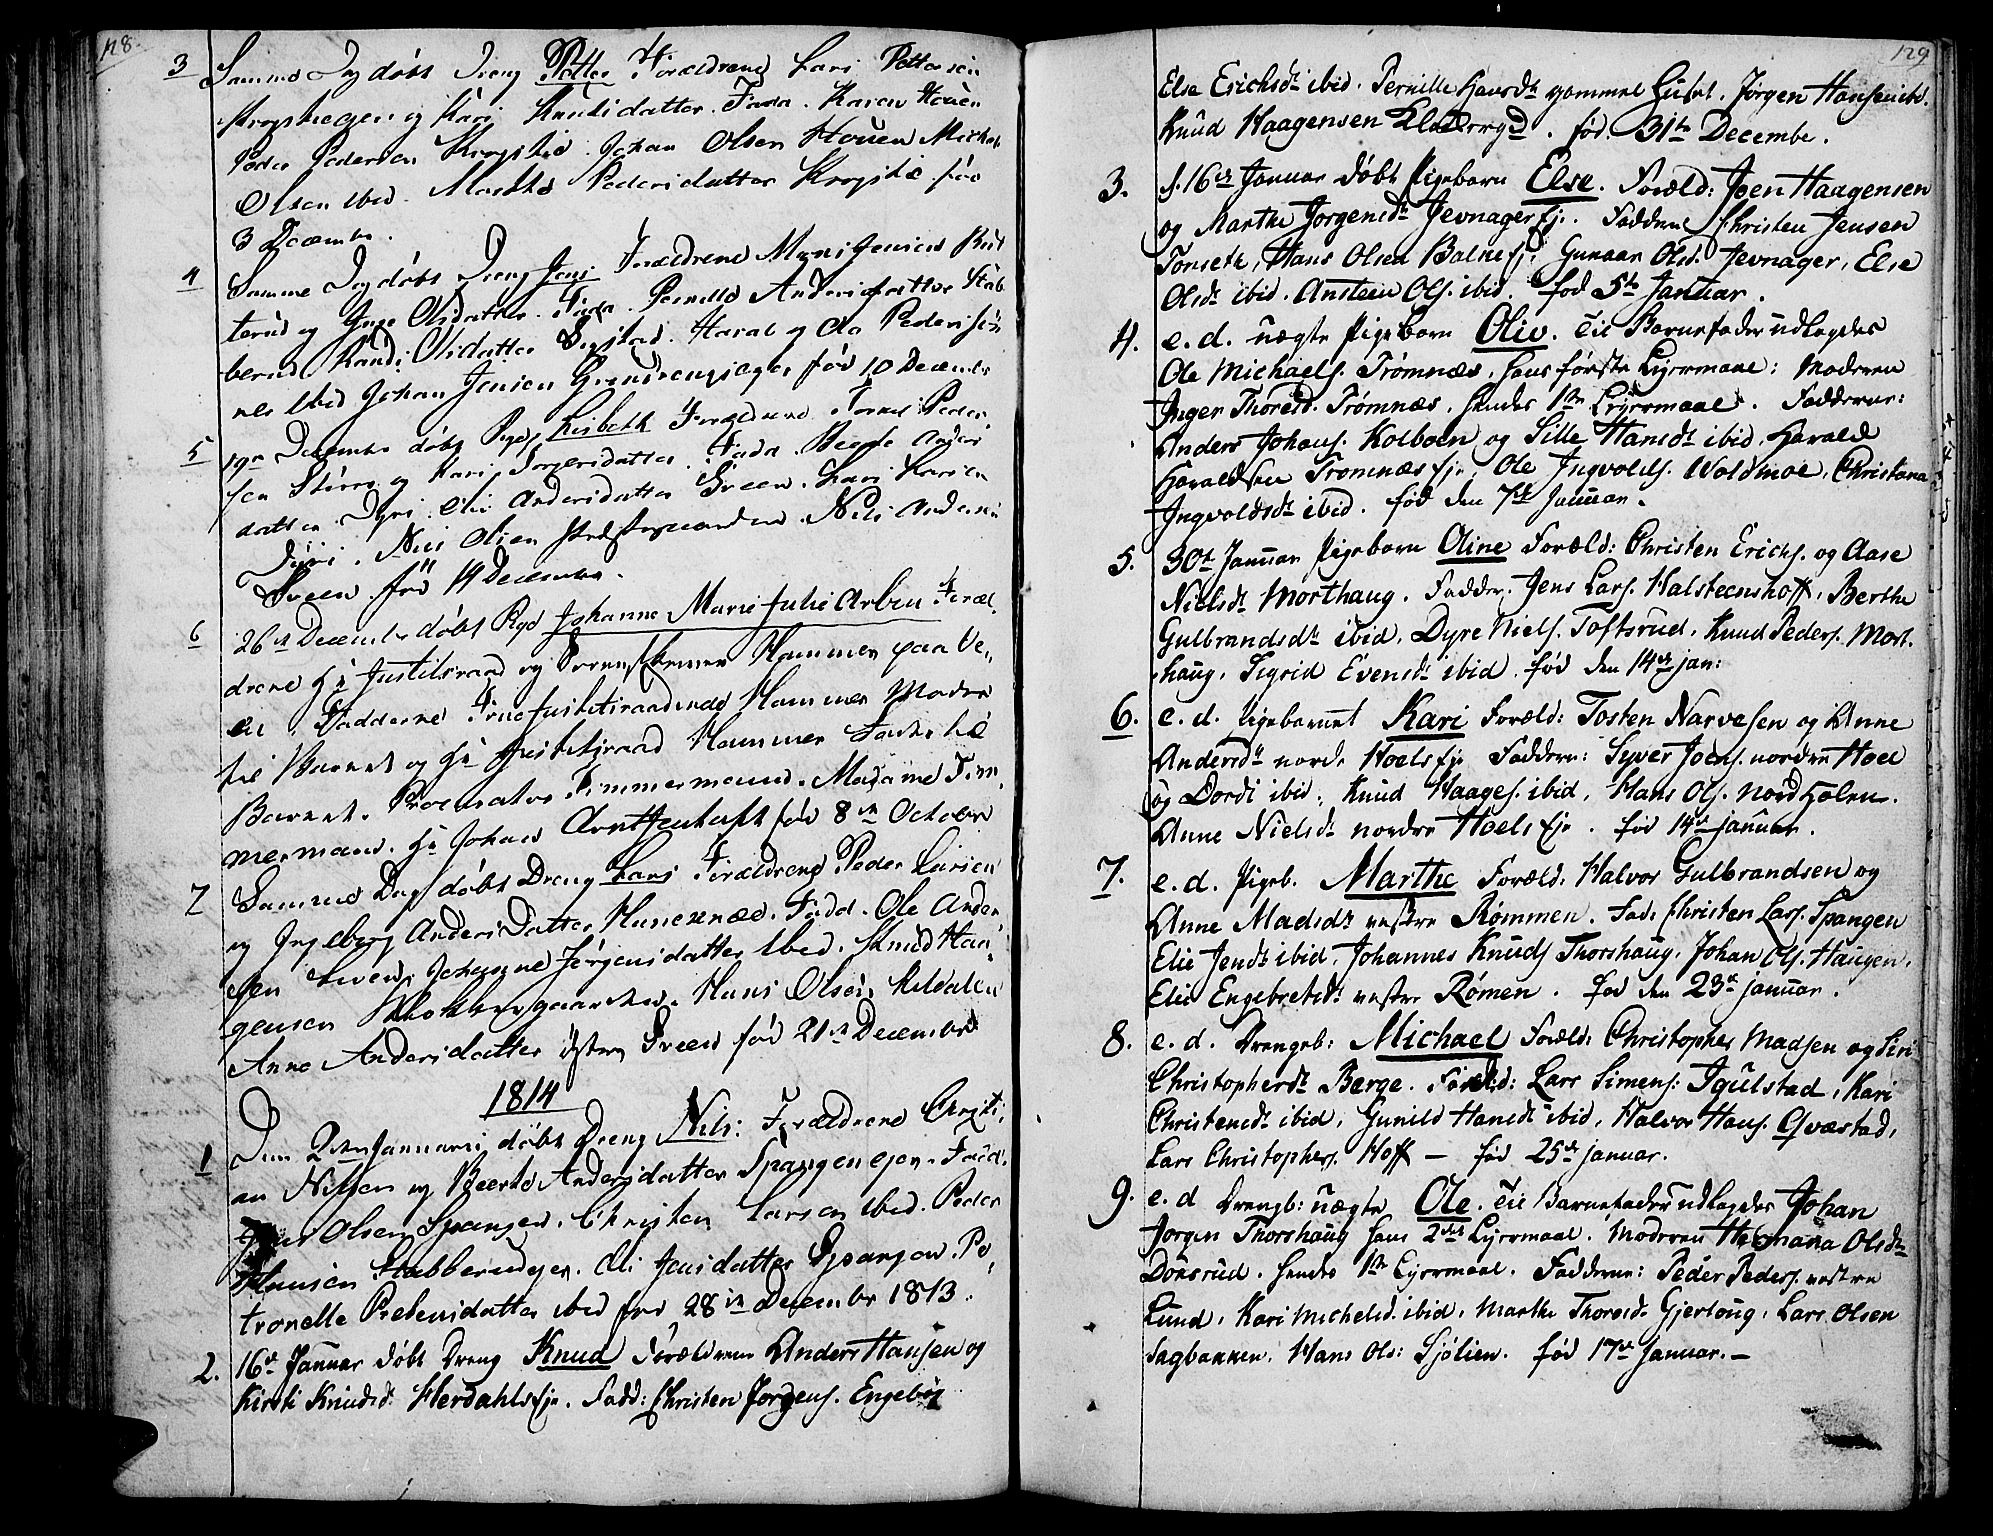 128.
3 Samme Dag døbt Dreng Petter Forældrene Lars Pettersen
Krogshagen og Kari Knudsdatter. Fadd. Karen Houen
Peder Pedersen Krogstie Johan Olsen Houen Michel
Olsen ibid. Marthe Pedersdatter Krogstie fød
3 Decembr.
4 Samme Dag døbt Dreng Jens Forældrene Mons Jensen
terud og Inge Olsdatter. Fadd. Pernelle Andersdatter Stab
berud Randi Olsdatter Sogstad. Haral og Ola Peders
nes ibid Johan Jensen fød 10 Decembr
5 19de Decembr døbt Pige Lisbeth Forældrene Peder
sen Støren og Kari Torgersdatter. Fadd. Berthe Anders
datter Dyri. Oli Andersdatter Sveen. Lars Larsen
Dyri. Niels Olsen Nils Andersen
Sveen fød 14 Decembr.
6 26de Decembr døbt Pige Johanne Marie Julie Arbin Foræl
drene Hr Justitsraad og Hammer paa Ve
en Fadderne Frue Justitsraadinde Hammer Moder
til Barnet og Hr Justitsraad Hammer Fader til
Barnet. Procurator Timmermand. Madame Tim
mermann. Hr Johan Arntzen fød 8de October
7 Samme Dag døbt Dreng Lars Forældrene Peder Larsen
og Ingeborg Andersdatter Hunexnæs. Fadd. Ole Ander
sen Sveen, Johanne Jørgensdatter ibid. Knud Haa
gensen Klokkergaarden. Hans Olsen Meldalen
Anne Andersdatter østre Sveen fød 21de Decembr
1814
1 Den 2den Januarij døbt Dreng Nils: Forældrene Christi
an Nilsen og Beerte Andersdatter Spangen ejer. Fadd.
Olsen Spangen. Christen Larsen ibid. Peder
Hansen Stabberud ejer. Oli Jensdatter Spangen. Pe
tronelle Prebensdatter ibid fød 28de Decembr 1813.
2. 16de Januar døbt Dreng Knud Forældrene Anders Hansen og
Kirsti Knudsd. Herdahls Eje. Fadd: Christen Jørgens. Engebøe
129
Else Erichsdr ibid. Pernille Hansdr gammel Huset. Jørgen Hansen ibd.
Knud Haagensen Klokkergd. fød. 31te Decembe.
3. d. 16de Januar døbt Pigebarn Else. Foræld: Joen Haagensen
og Marthe Jorgensdr Jevnager Eje. Faddere Christen Jensen
Tonsete, Hans Olsen Balne Ej. Gunaar Olsd. Jevnager, Else
Olsdr ibid. Ansteen Ols. ibid. fød 5te Januar.
4. e. d. uægte Pigebarn Oliv. Til Barnefader udlagdes
Ole Michaels. Trømnæs, hans første Lejermaal: Moderen
Inger Thoresd. Trømnæs. hendes 1te Lejermaal. Fadderne:
Anders Johans. Kolboen og Sille Hansdr ibid, Harald
Haraldsen Tromnæs Eje, Ole Ingvolds. Woldmoe, Christana
Ingvoldsdr ibid. fød den 7de Januar.
5. 30te Januar Pigebarn Oline Foræld: Christen Erichs. og Aase
Nielsdr Morthaug. Fadder. Jens Lars. Halsteenshoff, Berthe
Gulbrandsdr ibid, Dyre Niels. Toftsrud, Knud Peders. Mort
haug. Sigrid Evensdr ibid. fød den 14de jan:
6. e. d. Pigebarnet Kari Foræld: Tosten Narvesen og Anne
Andersdr norde Hoels Eje Faddere: Syver Joens. nordre Hoel
og Dordi ibid., Knud Haages. ibid, Hans Ols. Nordholen.
Anne Nielsdr nordre Hoels Eje. fød 14de januar.
7. e. d. Pigeb. Marthe Foræld: Halvor Gulbrandsen og
Anne Madsdr vestre Rømmen. Fad: Christen Lars. Spangen
Elie Jensdr ibid, Johannes Knuds Thorshaug, Johan Ols. Haugen,
Elie Engebretsdr vestre Rømen. fød den 23de januar.
8. e. d. Drengeb: Michael Foræld: Christopher Madsen og Siri
Christophersdr Berge. Foræld: Lars Simens: Igulstad, Kari
Christensdr ibid, Gunild Hansdr ibid, Halvor Hans. Qvæstad,
Lars Christophers. Hoff — fød 25de januar.
9. e. d Drengb: uægte Ole. Til Barnefader udlagdes Johan
Jorgen Thorshaug hans 2det Lejermaal. Moderen Hermana Olsdr
Dousrud. hendes 1te Lejermaal. Fadderne: Peder Peders. vestre
Lund, Kari Michelsd. ibid, Marthe Thoresd. Gjerloug, Lars Olsen
Sagbakken. Hans Ols: Sjølien. fød 17de Januar.—